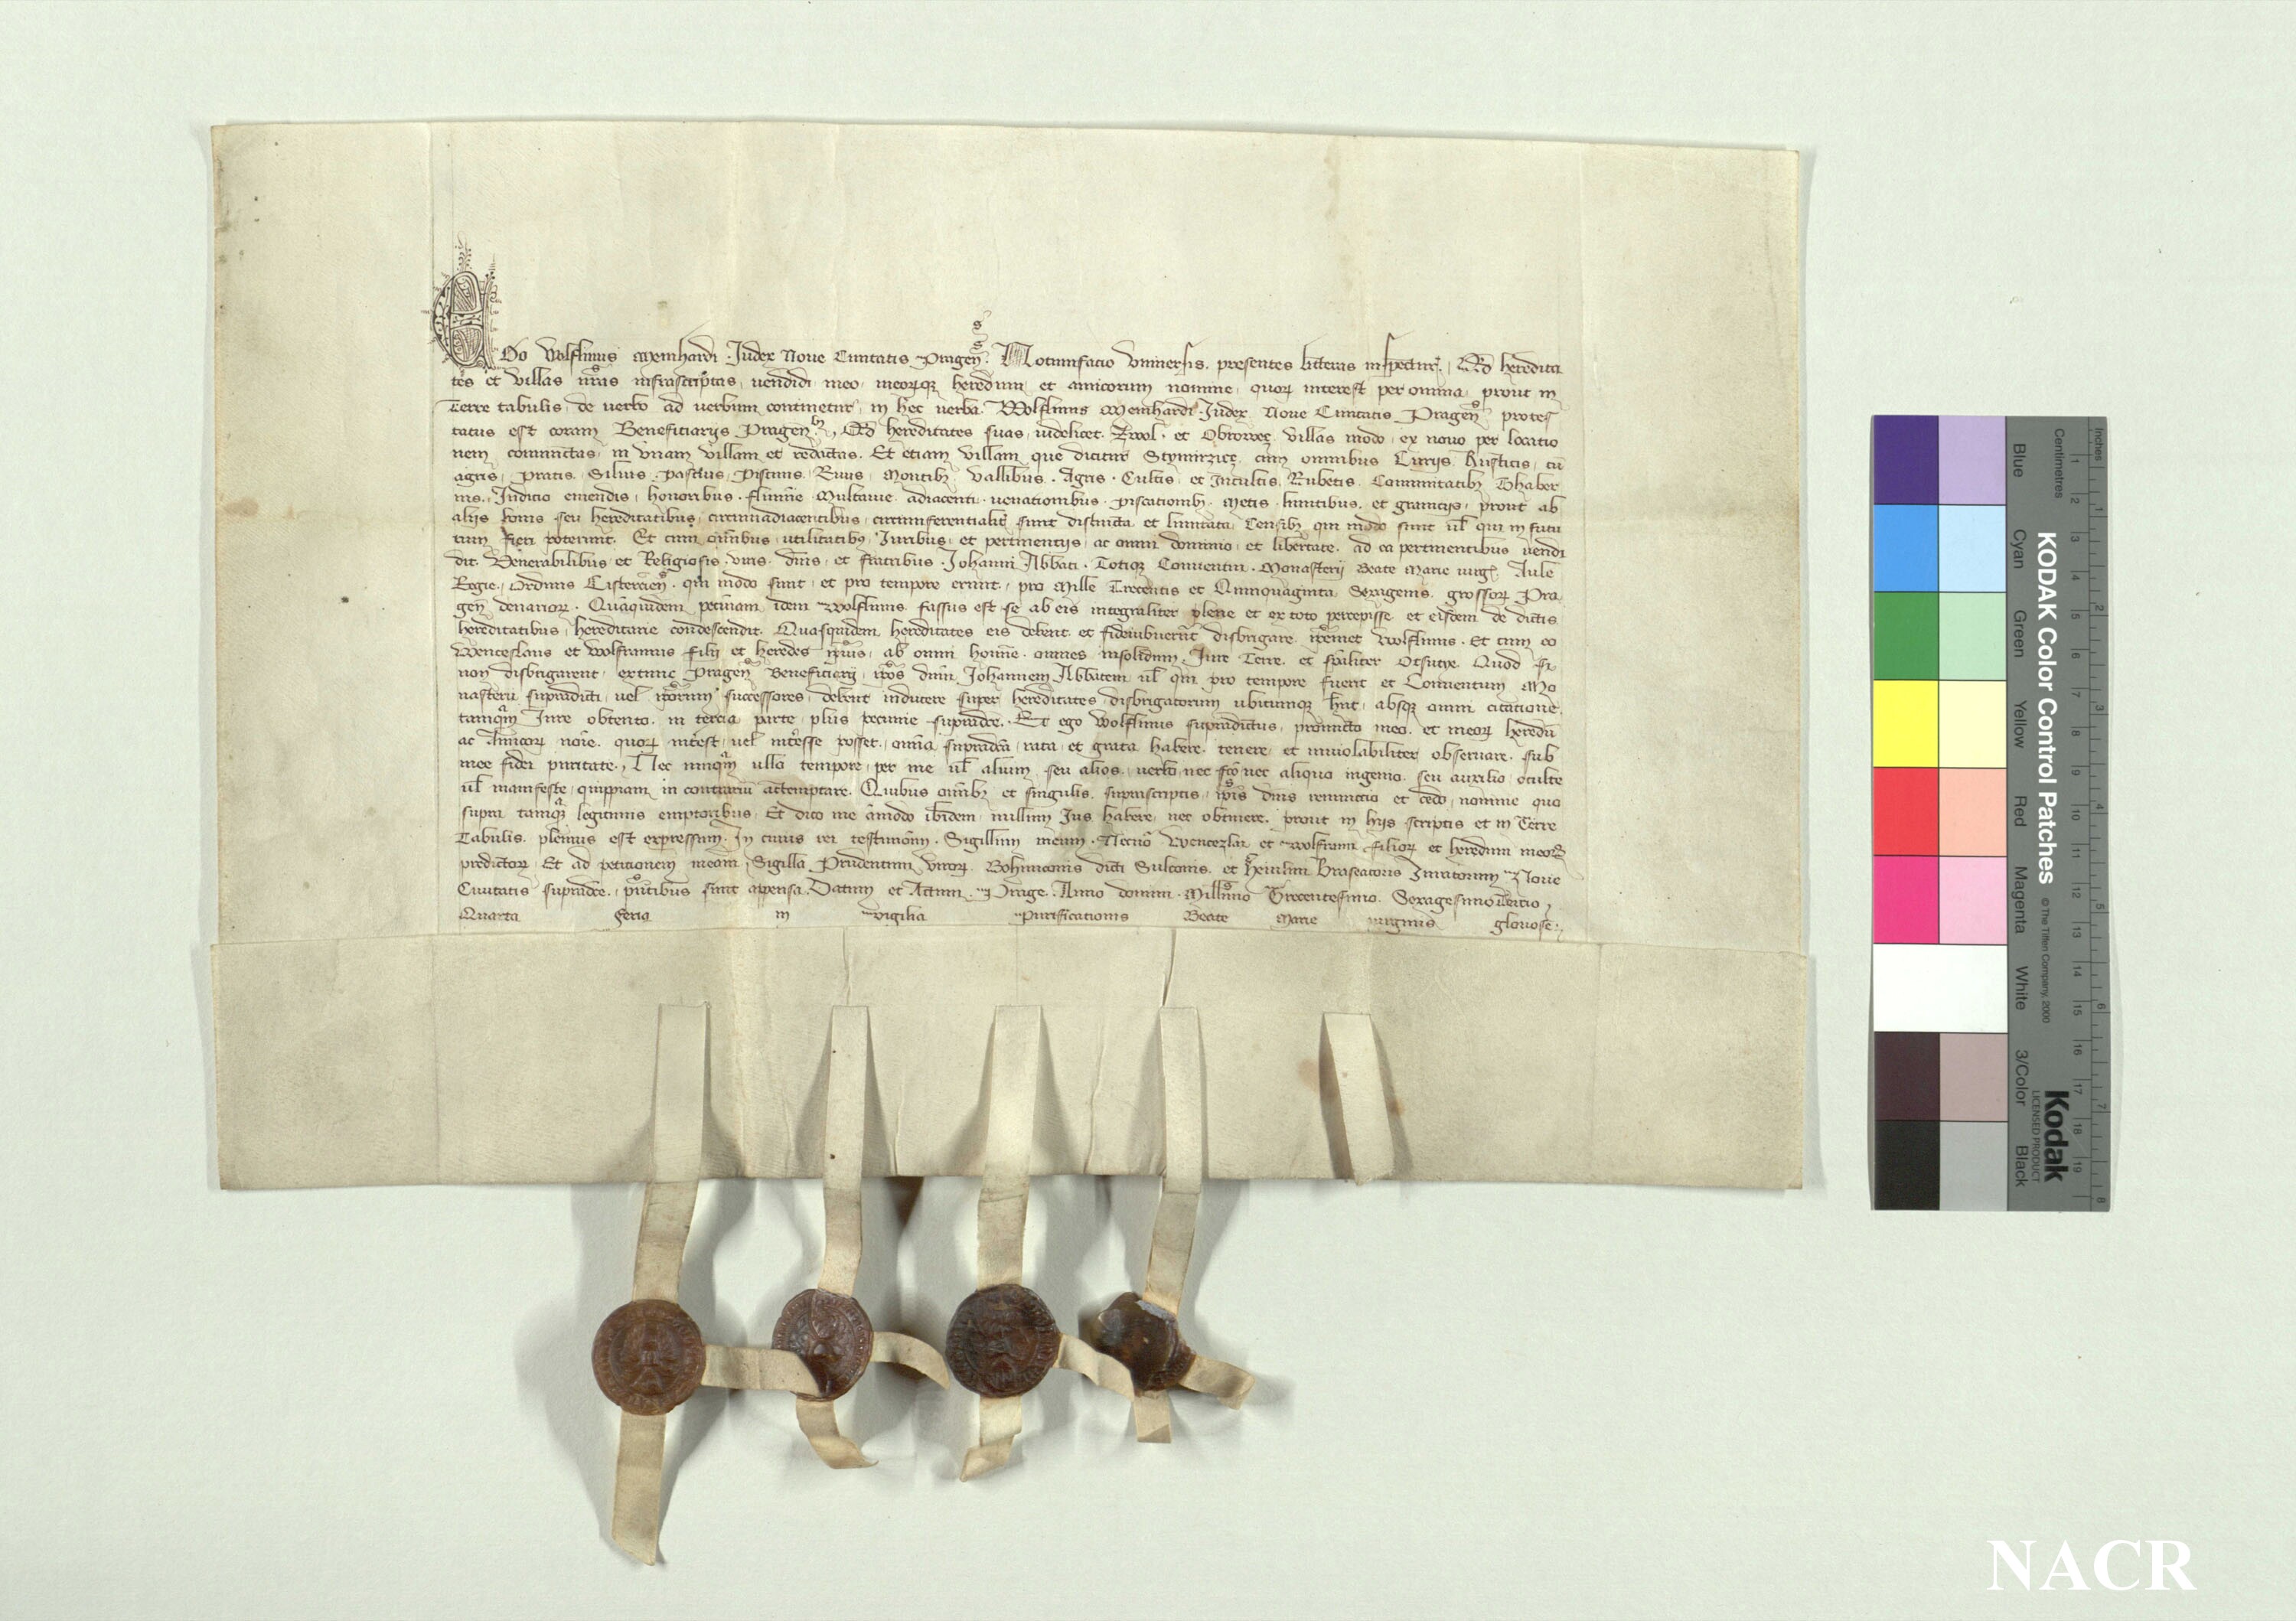 Ego Wolflinus Meinhardi Judex Noue Ciuitatis Pragen̄. Notumfacio Vniuersis presentes litteras inspectur̄. Qd̄ heredita
tēs et villas mr̄as infrascriptas vendidi meo meorq3 heredum et amicorum nomine quor interest per omnia prout in
Terre tabulis de uerbo ad uerbum continetur in hec uerba. Wolflinus Meinhardi Judex Noue Ciuitatis Pragen̄ protes
tatus est coram Beneficiarijs Pragen̄, Qd̄ hereditates suas videlicet Zwol et Obrowecz villas modo ex nouo per locatio
nem coniunctas in vnam villam et redactas. Et etiam villam que dicitur Stymirzicz cum omnibus Curijs Rusticis, cū
agris, pratis, Siluis, pascuis, piscinis, Riuis, Montib3 vallibus, Agris Cultis et Incultis, Rubetis, Communitatib3 Thaber
nis, Judicio emendis, honoribus, flumīe Multauie adiacenti, venationibus, piscationib3, Metis, limitibus et granicijs, prout ab
alijs bonis seu hereditatibus circumadiacentibus circumferentialit̄ sunt distincta et limitata Censib3 qui modo sunt ul̄ qui in futu
rum fieri poterunt. Et cum om̄ibus vtilitatib3, Juribus et pertinentijs ac omni dominio et libertate ad ea pertinentibus vendi
dit Venerabilibus et Religiosis viris dn̄is et fratribus Johanni Abbati Totiq3 Conuentui Monasterij Beate Marie virḡ Aule
Regie, Ordinis Cistercien̄ qui modo sunt et pro tempore erunt, pro Mille Trecentis et Quinquaginta Sexagenis grossor Pra
gen̄ denarior. Quāquidem pecūiam idem Wolflinus fassus est se ab eis integraliter plene et ex toto percepisse et eisdem de dictis
hereditatibus hereditarie condescendit. Quasquidem hereditates eis debent et fideiubuerūt disbrigare ip̄emet Wolflinus. Et cum eo
Wenceslaus et Wolframus filij et heredes ip̄ius, ab omni homīe omnes insolidum Jure Terre et sp̄aliter Otsutye. Quod si
non disbrigarent extunc Pragen̄ Beneficiarij ip̄os dn̄m Johannem Abbatem ul̄ qui pro tempore fuerit et Conuentum Mo
nasterij supradicti vel ip̄orum successores debent inducere super hereditates disbrigatorum vbicumq3 hn̄t absq3 omni citatione
tamq̄m Jure obtento in tercia parte plus pecunie supradc̄e. Et ego Wolflinus supradictus promitto meo et meor heredū
ac Amicor noīe quor int̄est vel int̄esse posset om̄ia supradc̄a rata et grata habere tenere et inuiolabiliter obseruare sub
mee fidei puritate, Nec vnq̄m vllo tempore per me ul̄ alium seu alios verbo nec fc̄o nec aliquo ingenio seu auxilio oculte
ul̄ manifeste quippiam in contrariū attemptare. Quibus om̄ib3 et singulis suprascriptis ip̄is dn̄is renuncio et cedo nomine quo
supra tamq̄3 legitimis emptoribus Et dico me āmodo ibidem nullum Jus habere nec obtinere prout in hijs scriptis et in Terre
Tabulis plenius est expressum. In cuius rei testimoiūm Sigillum meum Necnō Wenceslai et Wolframi filior et heredum meor
predictor Et ad petitionem meam Sigilla Prudentum viror Bohunconis dicti Sulconis et Heinlini Braseatoris Juratorum Noue
Ciuitatis supradc̄e, pn̄tibus sunt appensa. Datum et Actum Prage Anno domini Millīmo Trecentesimo Sexagesimotercio,
Quarta feria in vigilia Purificationis Beate Marie virginis gloriose.
KODAK Color Control Patches
© The Tiffen Company, 2000
Kodak
LICENSED PRODUCT
Inches
Centimetres
Blue Cyan Green Yellow Red Magenta White 3/Color Black
1 2 3 4 5 6 7 8
1 2 3 4 5 6 7 8 9 10 11 12 13 14 15 16 17 18 19
NACR